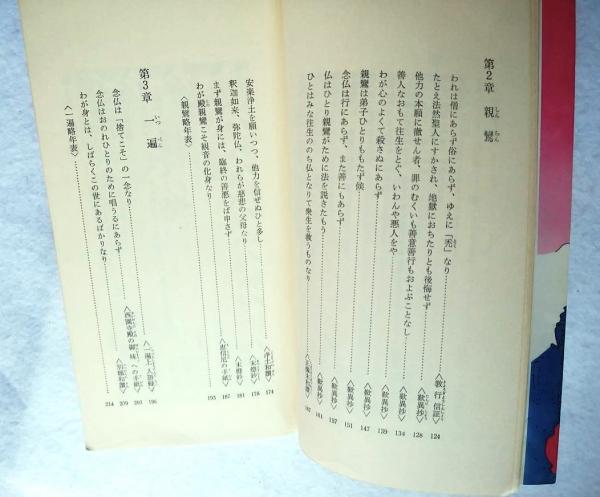 第2章 親鸞
しん らん
われは僧にあらず俗にあらず、ゆえに「禿」なり……〈教行信証〉 124
たとえ法然聖人にすかされ、地獄におちたりとも後悔せず……〈歎異抄〉 128
他力の本願に徹せん者、罪のむくいも善意善行もおよぶことなし……〈歎異抄〉 134
善人なおもて往生をとぐ、いわんや悪人をや……〈歎異抄〉 139
わが心のよくて殺さぬにあらず……〈歎異抄〉 147
親鸞は弟子ひとりももたず候……〈歎異抄〉 151
念仏は行にあらず、また善にもあらず……〈歎異抄〉 157
仏は、ひとり親鸞がために法を説きたもう……〈歎異抄〉 161
ひとはみな往生ののち仏となりて衆生を救うものなり…… 167
安楽浄土を願いつつ、他力を信ぜぬひと多し……〈浄土和讃〉 174
釈迦如来、弥陀仏、われらが慈悲の父母なり……〈末燈鈔〉 178
まず親鸞が身には、臨終の善悪をば申さず……〈末燈鈔〉 181
わが殿親鸞こそ観音の化身なり……〈恵信尼の手紙〉 187
〈親鸞略年表〉…… 193
第3章 一遍
いっ ぺん
念仏は「捨てこそ」の一念なり……〈一遍上人語録〉 196
念仏はおのれひとりのために唱うるにあらず……〈西園寺殿の御妹への手紙〉 203
わが身とは、しばらくこの世にあるばかりなり……〈別願和讃〉 209
〈一遍略年表〉…… 214